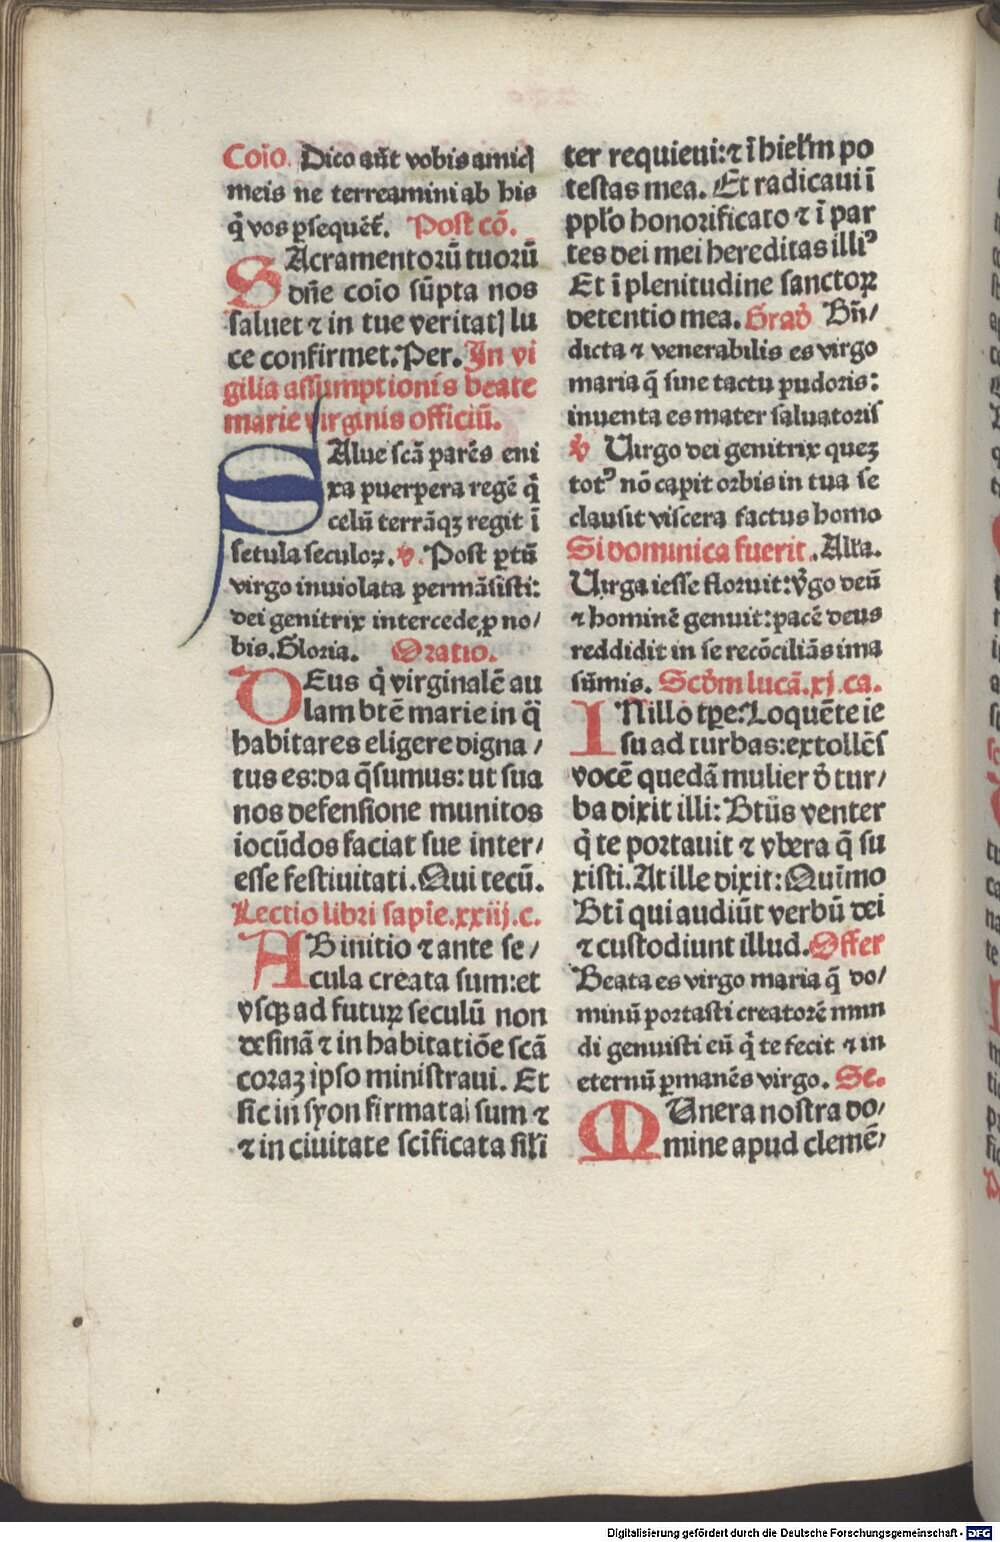 Coīo. Dico aūt vobis amicꝭ
meis ne terreamini ab his
q̄ vos ꝑsequēt̄. Post cō.
SAcramentorū tuorū
dn̄e coīo sūpta nos
saluet ⁊ in tue veritatꝭ lu
ce confirmet. Per. In vi
gilia assumptionis beate
marie virginis officiū.
SAlue scā parēs eni
xa puerpera regē q̄
celū terrāqꝫ regit ī
secula seculoꝝ. ꝟ. Post ꝑtū
virgo inuiolata permāsisti:
dei genitrix intercede ꝓ no/
bis. Gloria. Oratio.
DEus q̄ virginalē au
lam btē marie in q̄
habitares eligere digna /
tus es: da q̄sumus: ut sua
nos defensione munitos
iocūdos faciat sue inter/
esse festiuitati. Qui tecū.
Lectio libri sapīe. xxiij. c.
AB initio ⁊ ante se/
cula creata sum: et
vsqꝫ ad futuꝝ seculū non
desinā ⁊ in habitatiōe scā
coraꝫ ipso ministraui. Et
sic in syon firmata sum ⁊
⁊ in ciuitate scīficata sili
ter requieui: ⁊ ī hierlm̄ po
testas mea. Et radicaui ī
pplo honorificato ⁊ ī par
tes dei mei hereditas illiꝰ
Et ī plenitudine sanctoꝝ
detentio mea. Grad̄ Bn̄/
dicta ⁊ venerabilis es virgo
maria q̄ sine tactu pudoris:
inuenta es mater saluatoris
ꝟ Uirgo dei genitrix queꝫ
totꝰ nō capit orbis in tua se
clausit viscera factus homo
Si dominica fuerit. Alla.
Uirga iesse floruit: v̄go deū
⁊ hominē genuit: pacē deus
reddidit in se recōciliās ima
sūmis. Scd̄m lucā. xj. ca.
IN illo tꝑe: Loquēte ie
su ad turbas: extollēs
vocē quedā mulier d̄ tur/
ba dixit illi: Btūs venter
q̄ te portauit ⁊ vbera q̄ su
xisti. At ille dixit: Quīmo
Btī qui audiūt verbū dei
⁊ custodiunt illud. Offer
Beata es virgo maria q̄ do/
minū portasti creatorē mun
di genuisti eū q̄ te fecit ⁊ in
eternū ꝑmanēs virgo. Se.
MUnera nostra do/
mine apud clemē/
Digitalisierung gefördert durch die Deutsche Forschungsgemeinschaft - DFG